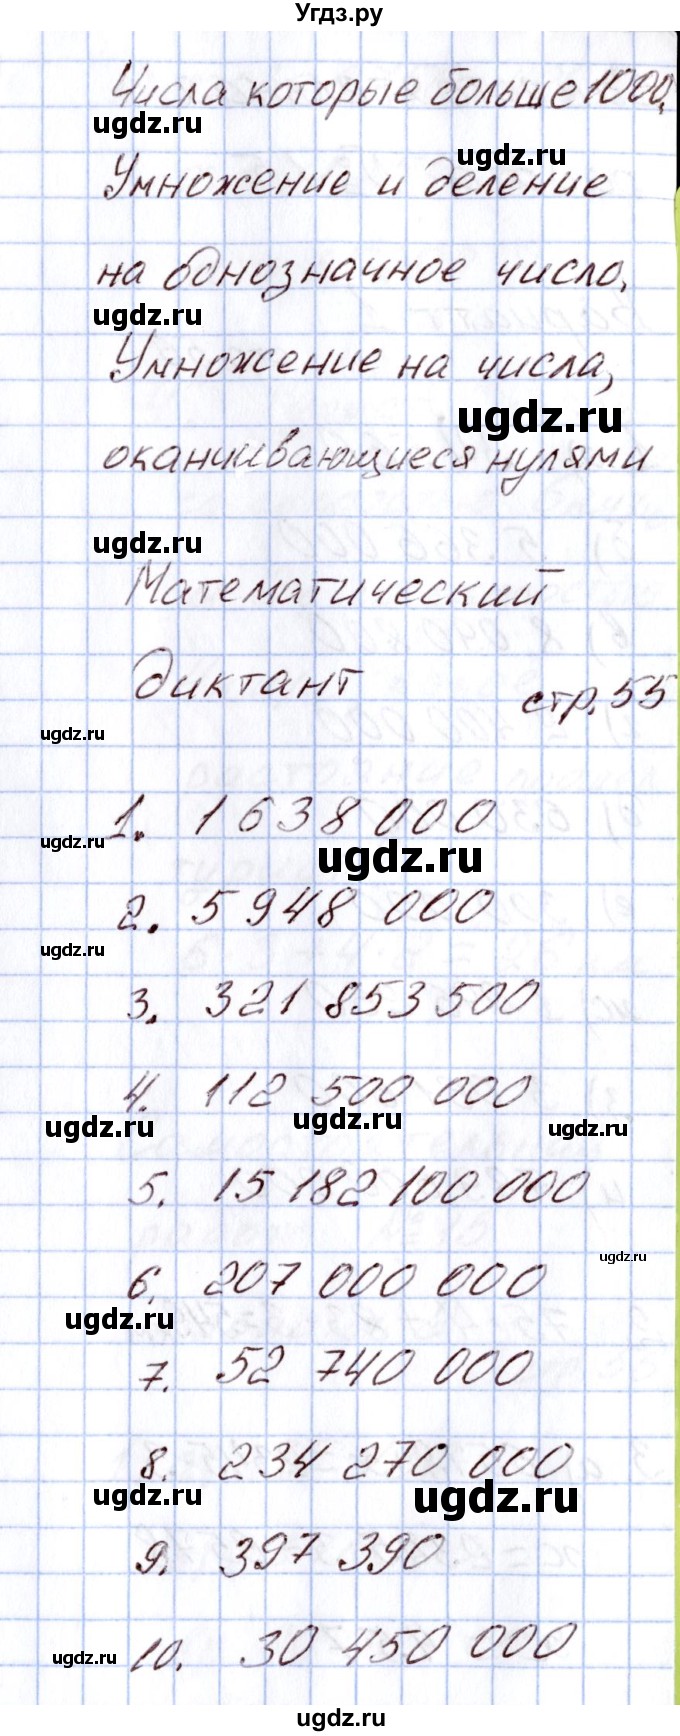 Угдз.ру
Числа которые больше 1000.
ugdz.ru
ugdz.ru
Умножение и деление
на однозначное число.
ugdz.ru
Умножение на числа,
ugdz.ru
оканчивающиеся нулями
ugdz.ru
Математический
диктант стр. 55
ugdz.ru
1. 1 638 000
ugdz.ru
ugdz.ru
2. 5 948 000
ugdz.ru
3. 321 853 500
4. 112 500 000
ugdz.ru
ugdz.ru
ugdz.ru
5. 15 182 100 000
ugdz.ru
6. 207 000 000
ugdz.ru
7. 52 740 000
8. 234 270 000
ugdz.ru
ugdz.ru
9. 397 390
10. 30 450 000
ugdz.ru
ugdz.ru